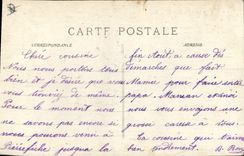 CARTE POSTALE
CORRESPONDANCE
ADRESSE
Chère cousine
Nous nous portons tous
bien et je désire que vous
vous trouviez de même.
Pour le moment nous
ne savons pas encore si
nous pourrons venir à
jusqu'à la
fin Août, à cause des
démarches que fait
Mame pour faire
papa. Maman et moi
nous vous envoyons une
grosse caresse à tous.
Ta cousine qui t'aime
bien tendrement.